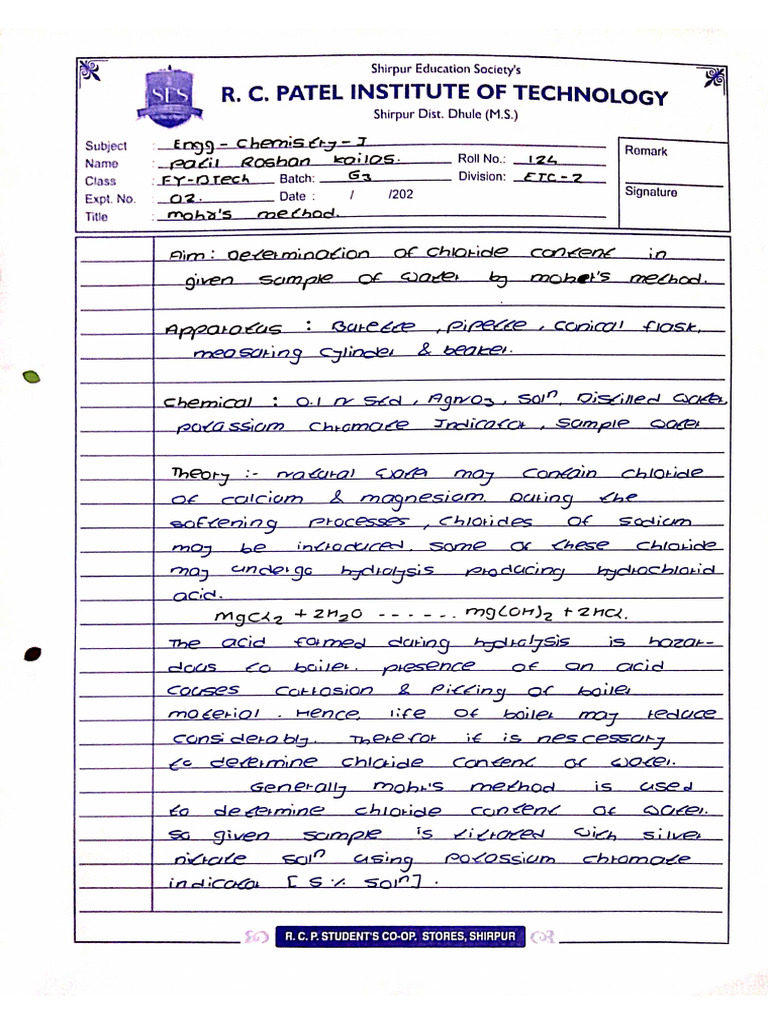 Shirpur Education Society's
SES
R. C. PATEL INSTITUTE OF TECHNOLOGY
Shirpur Dist. Dhule (M.S.)
Subject : Engg - Chemistry - I
Name : Patil Roshan Kailas. Roll No.: 124
Class : FY-BTech Batch: G3 Division: ETC-2
Expt. No. : 02. Date : / /202
Title : mohr's method.
Romark
Signature
Aim : Determination of chloride content in
given sample of water by moher's method.
Apparatus : Burette , pipette , conical flask,
measuring cylinder & beaker.
Chemical : 0.1 N Std , AgNO3 , Solⁿ, Distilled water,
potassium chromate Indicator , sample water
Theory :- natural water may contain chloride
of calcium & magnesium. During the
softening processes , chlorides of sodium
may be introduced. some of these chloride
may undergo hydrolysis producing hydrochlorid
acid.
MgCl2 + 2H2O - - - - - - mg(OH)2 + 2HCl.
The acid formed during hydralysis is hazar-
dous to boiler. presence of an acid
causes corrosion & pitting of boiler
material . Hence, life of boiler may reduce
considerably. Therefor it is nescessary
to determine chloride content of water.
Generally mohr's method is used
to determine chloride content of water.
so given sample is titrated with silver
nitrate solⁿ using potassium chromate
indicator [ 5 % solⁿ ] .
R. C. P. STUDENT'S CO-OP. STORES, SHIRPUR